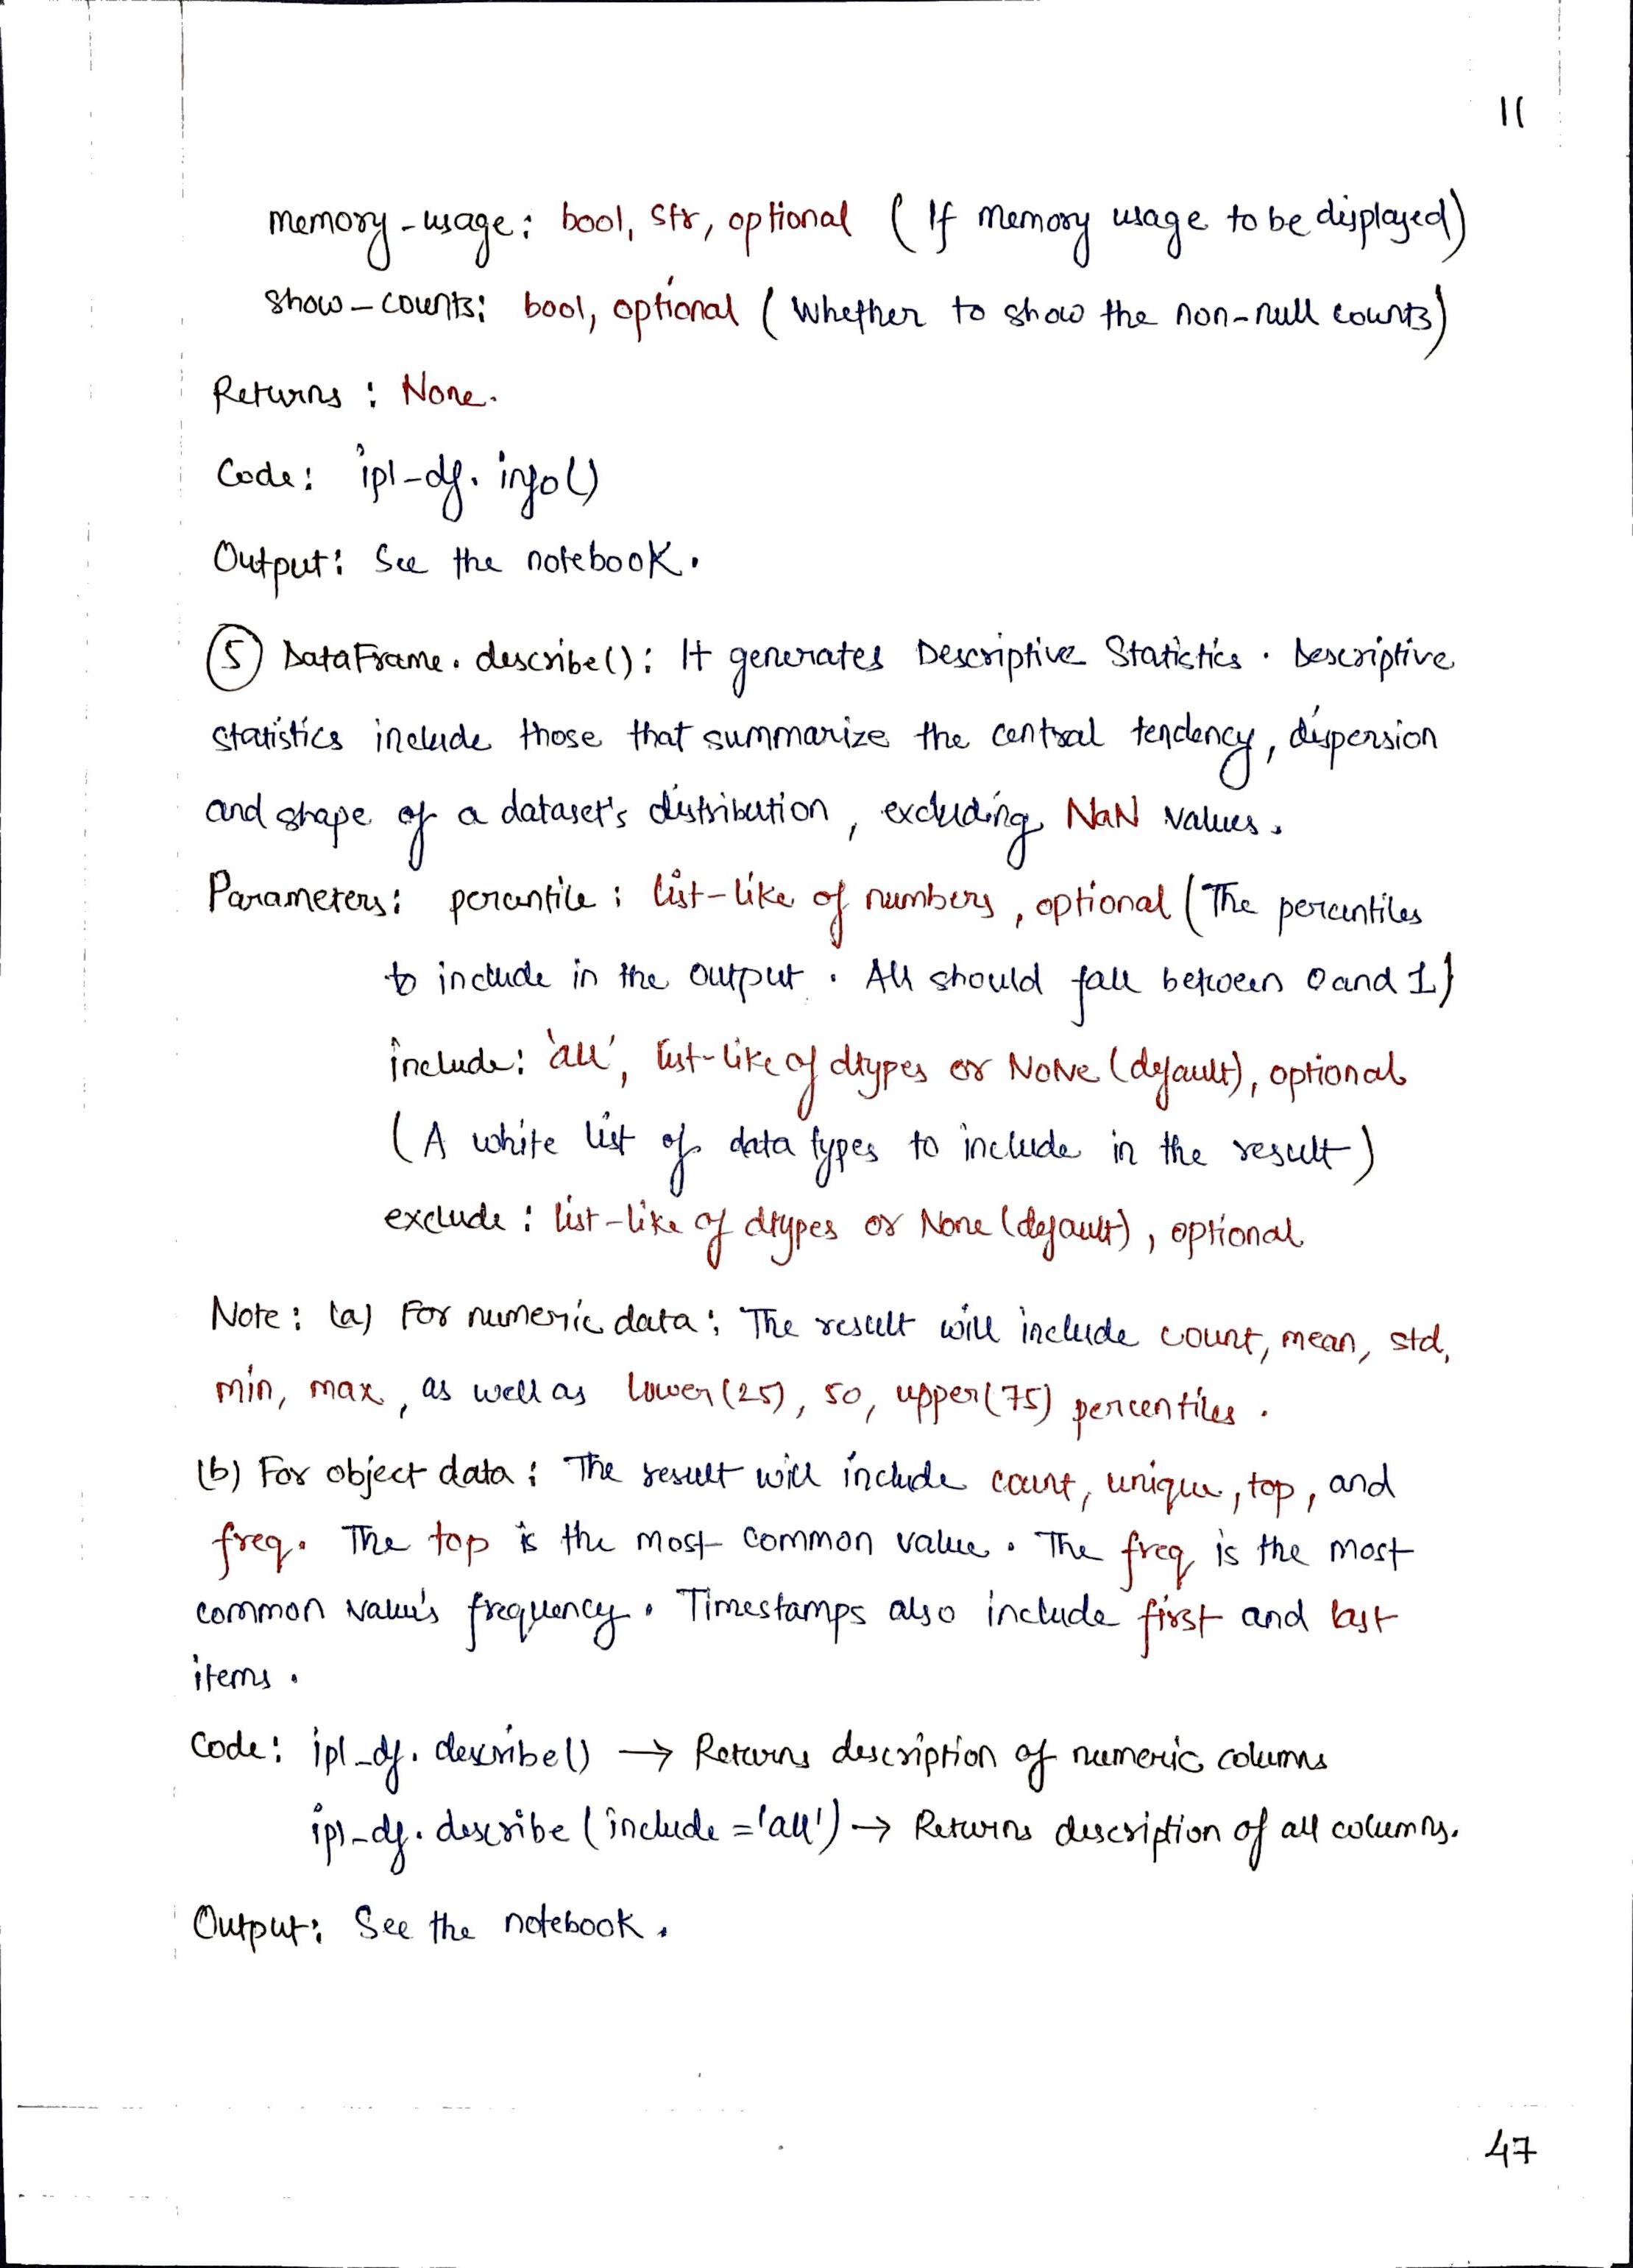 11
memory-usage: bool, str, optional (If memory usage to be displayed)
show-counts: bool, optional (Whether to show the non-null counts)
Returns: None.
Code: ipl-df.info()
Output: See the notebook.
(5) DataFrame.describe(): It generates Descriptive Statistics. Descriptive
statistics include those that summarize the central tendency, dispersion
and shape of a dataset's distribution, excluding NaN values.
Parameters: percentile: list-like of numbers, optional (The percentiles
to include in the output. All should fall between 0 and 1)
include: 'all', list-like of dtypes or None (default), optional
(A white list of data types to include in the result)
exclude: list-like of dtypes or None (default), optional
Note: (a) For numeric data: The result will include count, mean, std,
min, max, as well as lower(25), 50, upper(75) percentiles.
(b) For object data: The result will include count, unique, top, and
freq. The top is the most common value. The freq is the most
common value's frequency. Timestamps also include first and last
items.
Code: ipl_df.describe() → Returns description of numeric columns
ipl-df.describe(include='all') → Returns description of all columns.
Output: See the notebook.
47